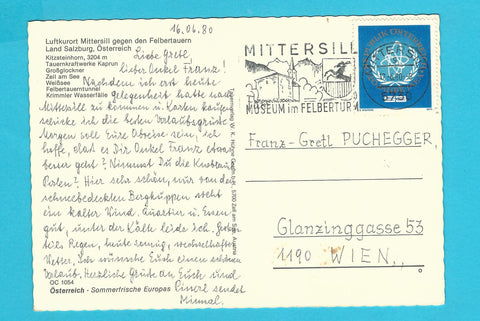 16.04.80
Luftkurort Mittersill gegen den Felbertauern
Land Salzburg, Österreich
Kitzsteinhorn, 3204 m
Tauernkraftwerke Kaprun
Großglockner
Zell am See
Weißsee
Felbertauerntunnel
Krimmler Wasserfälle
Liebe Gretl,
lieber Onkel Franz!
Nachdem ich erst heute
Gelegenheit hatte nach
Mittersill zu kommen u. Karten kaufen
schicke ich die besten Urlaubsgrüße
Morgen soll Eure Abreise sein, ich
hoffe, daß es Dir Onkel Franz etwas
besser geht? Nimmst Du die Knoblauch
Perlen? Hier sehr schön, nur von den
schneebedeckten Bergkuppen weht
ein kalter Wind. Quartier u. Essen
gut, unter der Kälte leide ich.
teils Regen, heute sonnig, wechselhaftes
Wetter. Ich wünsche Euch einen schönen
Urlaub. Herzliche Grüße an Euch
sendet
OC 1054
Österreich - Sommerfrische Europas
MITTERSILL
MUSEUM im FELBERTURM
REPUBLIK ÖSTERREICH
Franz-Gretl PUCHEGGER,
Glanzinggasse 53
1190 WIEN,